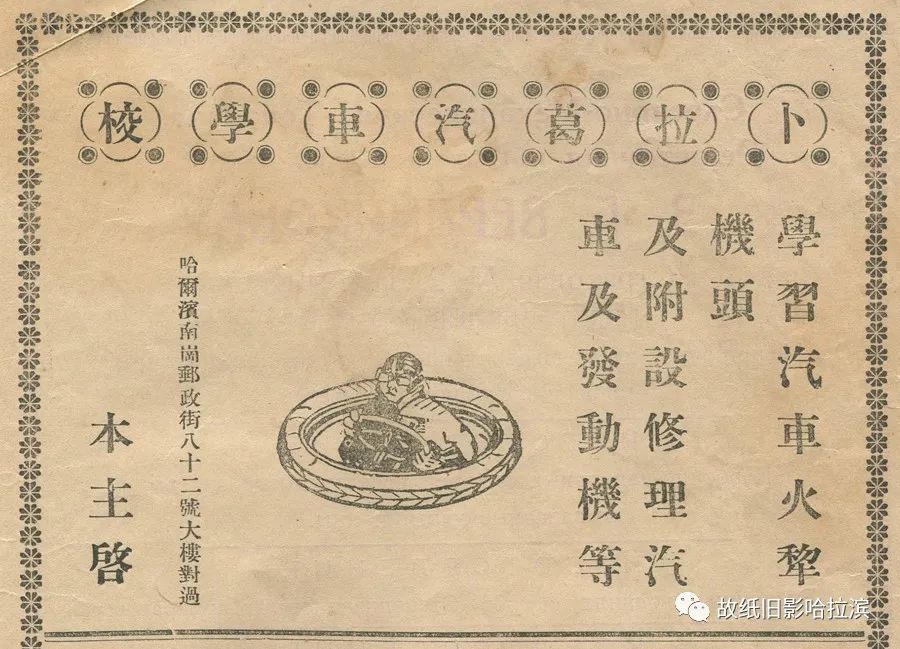 卜拉葛汽車學校
學習汽車火犂
機頭
及附設修理汽
車及發動機等
哈爾濱南崗郵政街八十二號大樓對過
本主啓
故纸旧影哈拉滨